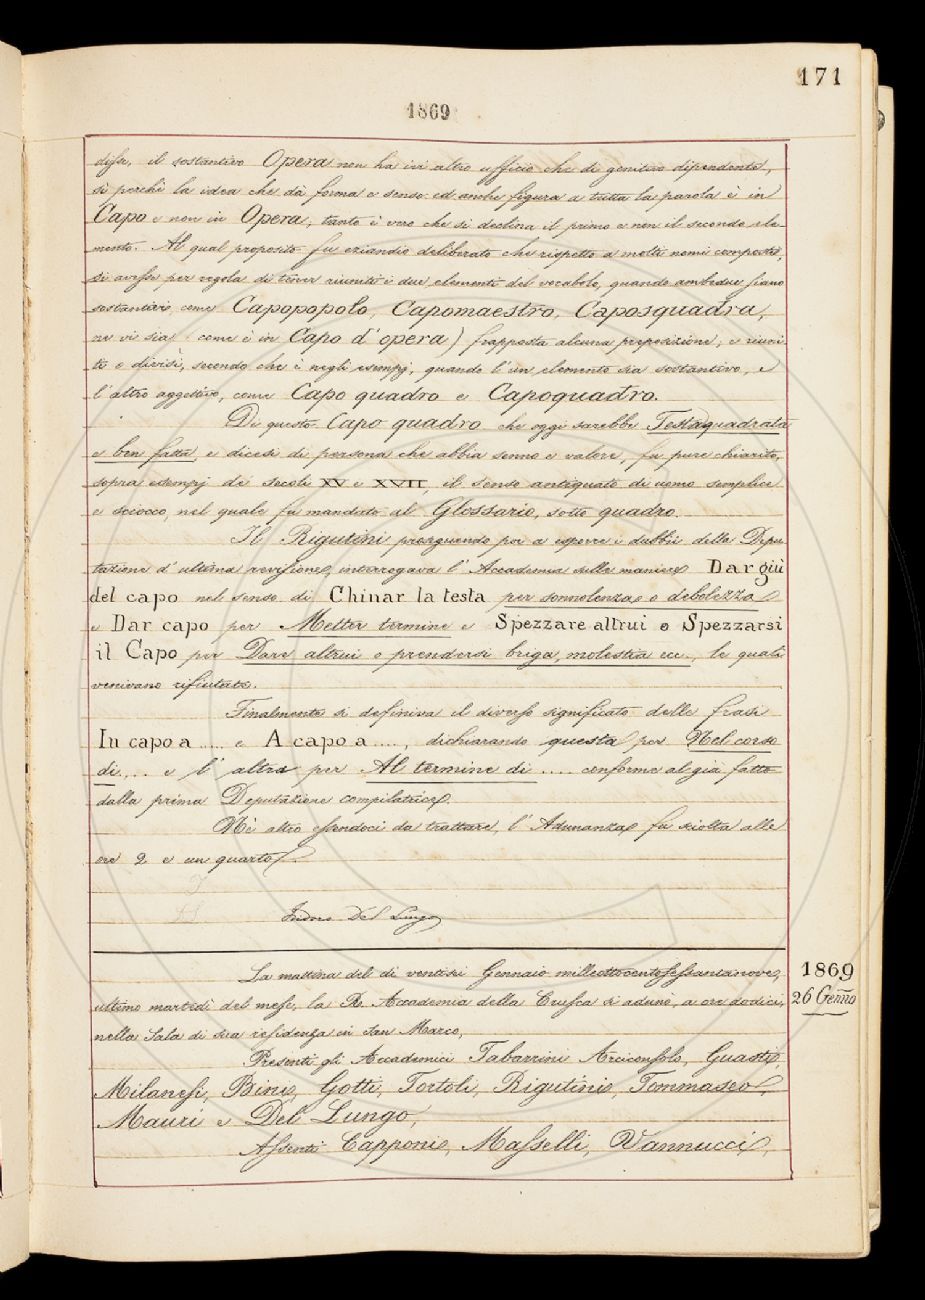 171
1869
disse, il sostantivo Opera non ha ivi altro ufficio che di genitivo dipendente,
sì perchè la idea che dà forma e senso ed anche figura a tutta la parola è in
Capo e non in Opera; tanto è vero che si declina il primo e non il secondo ele-
mento. Al qual proposito fu eziandio deliberato che rispetto a molti nomi composti,
si avesse per regola di tener riuniti i due elementi del vocabolo, quando ambedue siano
sostantivi, come Capopopolo, Capomaestro, Caposquadra,
ne vi sia (come è in Capo d'opera) frapposta alcuna preposizione; e riuni-
ti o divisi, secondo che è negli esempj, quando l'un elemento sia sostantivo, e
l'altro aggettivo, come Capo quadro e Capoquadro.
Di questo Capo quadro che oggi sarebbe Testa quadrata
e ben fatta, e dicesi di persona che abbia senno e valore, fu pure chiarito,
sopra esempj de' secoli XV e XVII, il senso antiquato di uomo semplice
e sciocco, nel quale fu mandato al Glossario, sotto quadro.
Il Rigutini proseguendo poi a esporre i dubbii della Depu
tazione d'ultima revisione, interrogava l'Accademia sulle maniere Dar giù
del capo nel senso di Chinar la testa per sonnolenza o debolezza
e Dar capo per Metter termine e Spezzare altrui o Spezzarsi
il Capo per Dare altrui o prendersi briga, molestia ecc., le quali
venivano rifiutate.
Finalmente si definiva il diverso significato delle frasi
In capo a ..... e A capo a ....., dichiarando questa per Nel corso
di.... e l'altra per Al termine di .... conforme al già fatto
dalla prima Deputazione compilatrice.
Nè altro essendoci da trattare, l'Adunanza fu sciolta alle
ore 2 e un quarto.
Isidoro Del Lungo
La mattina del dì ventisei Gennaio milleottocentosessantanove,
1869
ultimo martedì del mese, la R. Accademia della Crusca si adunò, a ore dodici,
26 Genno
nella Sala di sua residenza in San Marco,
Presenti gli Accademici Tabarrini Arciconsolo, Guasti,
Milanesi, Bini, Gotti, Tortoli, Rigutini, Tommaseo,
Mauri e Del Lungo,
Assenti Capponi, Masselli, Vannucci,